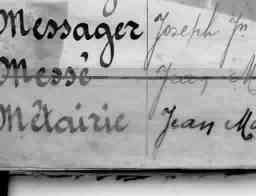 Messager Joseph Jn
Messé Jean M
Métairie Jean Ma